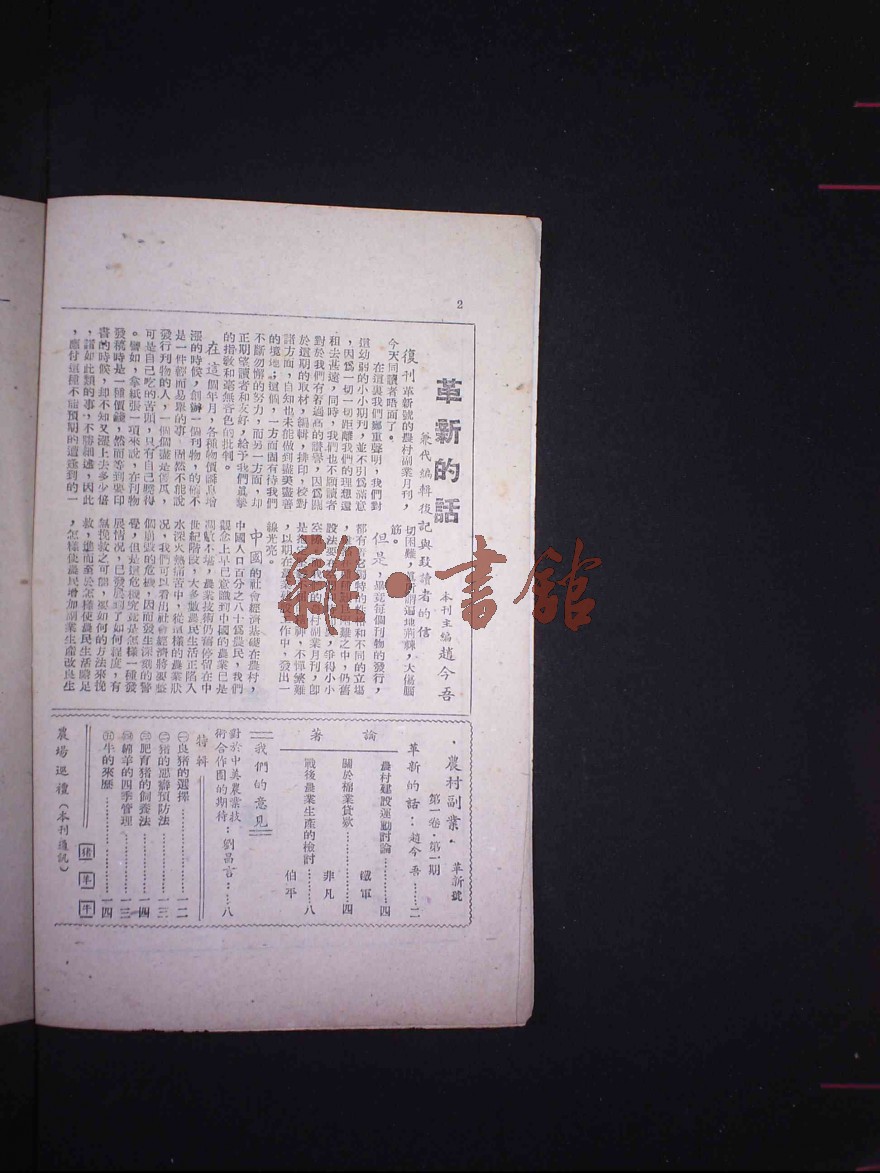 2
革新的話
兼代編輯後記與致讀者的信
本刊主編趙今吾
復刊革新號的農村副業月刊，
今天同讀者晤面了。
在這裏我們鄭重聲明，我們對
這幼弱的小小期刊，並不引爲滿意
，因爲一切一切距離我們的理想還
和去甚遠，同時，我們也不願讀者
對於我們有着過高的讚譽，因爲關
於這期的取材，編輯，排印，校對
諸方面，自知也未能做到盡美盡善
的境地；這個，一方面固有待我們
不斷勿懈的努力，而另一方面，却
正期望讀者和友好，給予我們眞摯
的指敎和毫無吝色的批判。
在這個年月，各種物價飛息增
漲的時候，創辦一個刊物，的確不
是一件輕而易舉的事，固然不能說
發行刊物的人，一個個盡是傻瓜，
可是自己吃的苦頭，只有自己曉得
。譬如，拿紙張一項來說，在刊物
發稿時是一種價錢，然而等到要印
書的時候，却不知又漲上去多少倍
，諸如此類的事，不勝細述，因此
，應付這種不能預期的遭逢到的一
切困難，眞所謂遍地荆棘，大傷腦
筋。
但是，畢竟每個刊物的發行，
都有着
特的
和不同的立塲
難之中，仍舊
設法要
爭得小小
空
我們的
村副業月刊，卽
是
神，不憚繁難
，以期在
工作中，發出一
線光亮。
中國的社會經濟基礎在農村，
中國人口百分之八十爲農民，我們
觀念上早已意識到中國的農業已是
凋敝不堪，農業技術仍舊停留在中
世紀階段，大多數農民生活正陷入
水深火熱痛苦中，從這樣的農業狀
况，我們可以看出社會經濟將要整
個崩潰的危機，因而發生深刻的警
覺，但是這危機究竟是怎樣一種發
展情况，已發展到了如何程度，有
無挽救之可能，要如何的方法來挽
救，進而至於怎樣使農民生活臨足
，怎樣使農民增加副業生產改良生
·農村副業·
革新號
第一卷·第一期
革新的話：趙今吾……二
論著
農村建設運動討論……鐵軍　四
關於福業貸款……非凡　四
戰後農業生產的檢討……伯平　八
我們的意見
對於中美農業技
術合作團的期待：劉昌言…八
特輯
㊀良猪的選擇……一二
㊁猪的思癖預防法……一三
㊂肥育猪的飼養法……一四
㊃綿羊的四季管理……一三
㊄牛的來歷……一四
猪　羊　牛
農場巡禮（本刊通訊）
雜·書館